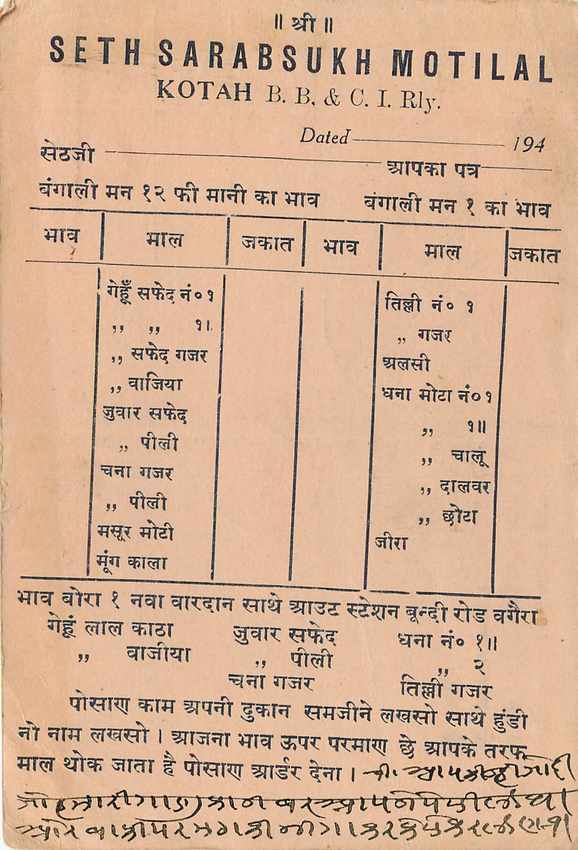 ॥ श्री ॥
SETH SARABSUKH MOTILAL
KOTAH B. B. & C. I. Rly.
Dated 194
सेठजी आपका पत्र
बंगाली मन १२ फी मानी का भाव बंगाली मन १ का भाव
भाव माल जकात भाव माल जकात
गेहूँ सफेद नं० १
,, ,, १।
,, सफेद गजर
,, वाजिया
जुवार सफेद
,, पीली
चना गजर
,, पीली
मसूर मोटी
मूंग काला
तिल्ली नं० १
,, गजर
अलसी
धना मोटा नं० १
,, १॥
,, चालू
,, दालवर
,, छोटा
जीरा
भाव बोरा १ नवा वारदान साथे आउट स्टेशन बून्दी रोड वगैरा
गेहूं लाल काठा जुवार सफेद धना नं० १॥
,, वाजीया ,, पीली ,, २
चना गजर तिल्ली गजर
पोसाण काम अपनी दुकान समजीने लखसो साथे हुंडी
नो नाम लखसो । आजना भाव ऊपर परमाण छे आपके तरफ
माल थोक जाता है पोसाण आर्डर देना ।